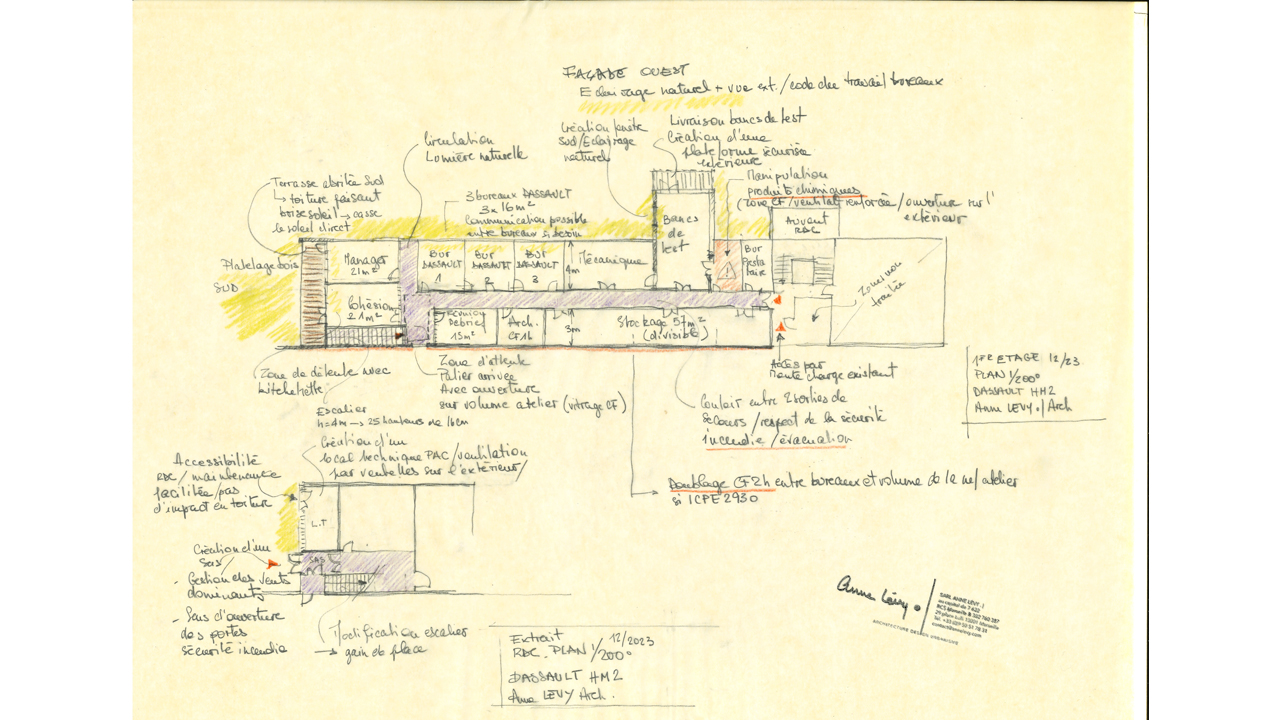 FAÇADE OUEST
Eclairage naturel + vue ext. / code du travail bureaux
Livraison bancs de test
Création d'une
plateforme sécurisée
extérieure
Création fenêtre
Sud / Eclairage
naturel
Circulation
Lumière naturelle
Manipulation
produits chimiques
(zone CF / ventilat° renforcée / ouverture sur l'
extérieur
Terrasse abritée Sud
→ toiture faisant
brise soleil → casse
le soleil direct
3 bureaux DASSAULT
3 x 16 m²
Communication possible
entre bureaux si besoin
Auvent
RDC
Bancs
de
test
Platelage bois
SUD
Manager
21 m²
BUR
DASSAULT
1
BUR
DASSAULT
2
BUR
DASSAULT
3
4m
Mécanique
BUR
Gestion
naire
Zone non
traitée
Cohésion
21 m²
Réunion
Débrief
15 m²
Arch.
CF 1h
3m
Stockage 57 m²
(divisible)
Zone de détente avec
kitchenette
Zone d'attente
Palier arrivée
Avec ouverture
sur volume atelier (vitrage CF)
Accès par
monte charge existant
Couloir entre 2 sorties de
secours / respect de la sécurité
incendie / évacuation
1ER ETAGE 12/23
PLAN 1/200°
DASSAULT HM2
Anne LEVY . / Arch
Escalier
h = 4m → 25 hauteurs de 16 cm
Création d'un
local technique PAC / ventilation
par ventelles sur l'extérieur /
Accessibilité
RDC / maintenance
facilitée / pas
d'impact en toiture
Doublage CF 2h entre bureaux et volume de la nef / atelier
si ICPE 2930
L.T
SAS
Création d'un
Sas
- Gestion des vents
dominants
- Sens d'ouverture
des portes
sécurité incendie
Modification escalier
→ gain de place
Extrait 12/2023
RDC. PLAN 1/200°
DASSAULT HM2
Anne LEVY Arch.
Anne Lévy.
SARL ANNE LEVY . /
au capital de 7 622
ARCHITECTURE DESIGN URBANISME